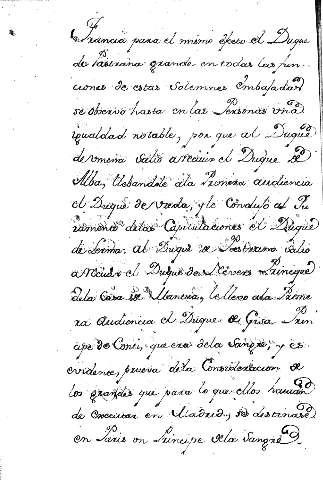 Francia para el mismo efecto el Duque
de Pastrana grande en todas las fun-
ciones de estas solemnes Embajadas
se observó hasta en las Personas una
igualdad notable, por que al Duque
de umena salio a recivir el Duque de
Alba, llebandole a la Primera audiencia
el Duque de Uzeda, y le Condujo al Ju-
ramento de las Capitulaciones el Duque
de Lerma. al Duque de Pastrana salio
a recivir el Duque de Nevers Principe
de la Casa de Mantua, le llevo a la Prime
ra audiencia el Duque de Guisa Prin
cipe de Conti, que era de la Sangre, y es
evidence, prueva de la Consideracion de
los grandes que para lo que ellos havian
de executar en Madrid, se destinase
en Paris un Principe de la Sangre